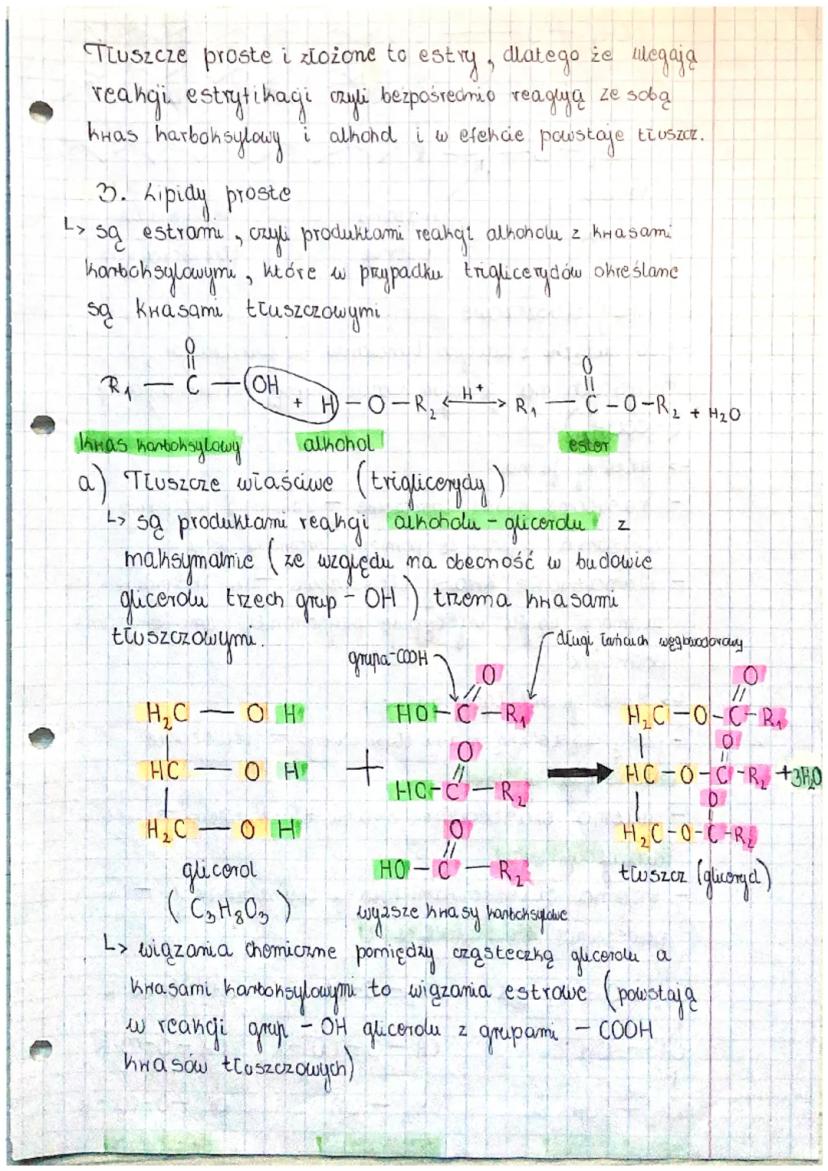 Tłuszcze proste i złożone to estry, dlatego że ulegają
reakcji estryfikacji czyli bezpośrednio reagują ze sobą
kwas karboksylowy i alkohol i w efekcie powstaje tłuszcz.
3. Lipidy proste
↳ są estrami, czyli produktami reakcji alkoholu z kwasami
karboksylowymi, które w przypadku triglicerydów określane
są kwasami tłuszczowymi
O
||
R₁ — C — OH + H — O — R₂ ⟷ H⁺ R₁ — C – O – R₂ + H₂O
O
||
kwas karboksylowy alkohol ester
a) Tłuszcze właściwe (triglicerydy)
↳ są produktami reakcji alkoholu - glicerolu z
maksymalnie (ze względu na obecność w budowie
glicerolu trzech grup - OH) trzema kwasami
tłuszczowymi.
grupa -COOH długi łańcuch węglowodorowy
O O
H₂C — O H HO – C – R₁ H₂C – O – C – R₁
O O
HC — O H + HO – C – R₂ → HC – O – C – R₂ + 3H₂O
O O
H₂C — O H HO – C – R₂ H₂C – O – C – R₂
glicerol tłuszcz (gliceryd)
(C₃H₈O₃) wyższe kwasy karboksylowe
↳ wiązania chemiczne pomiędzy cząsteczką glicerolu a
kwasami karboksylowymi to wiązania estrowe (powstają
w reakcji grup - OH glicerolu z grupami - COOH
kwasów tłuszczowych)